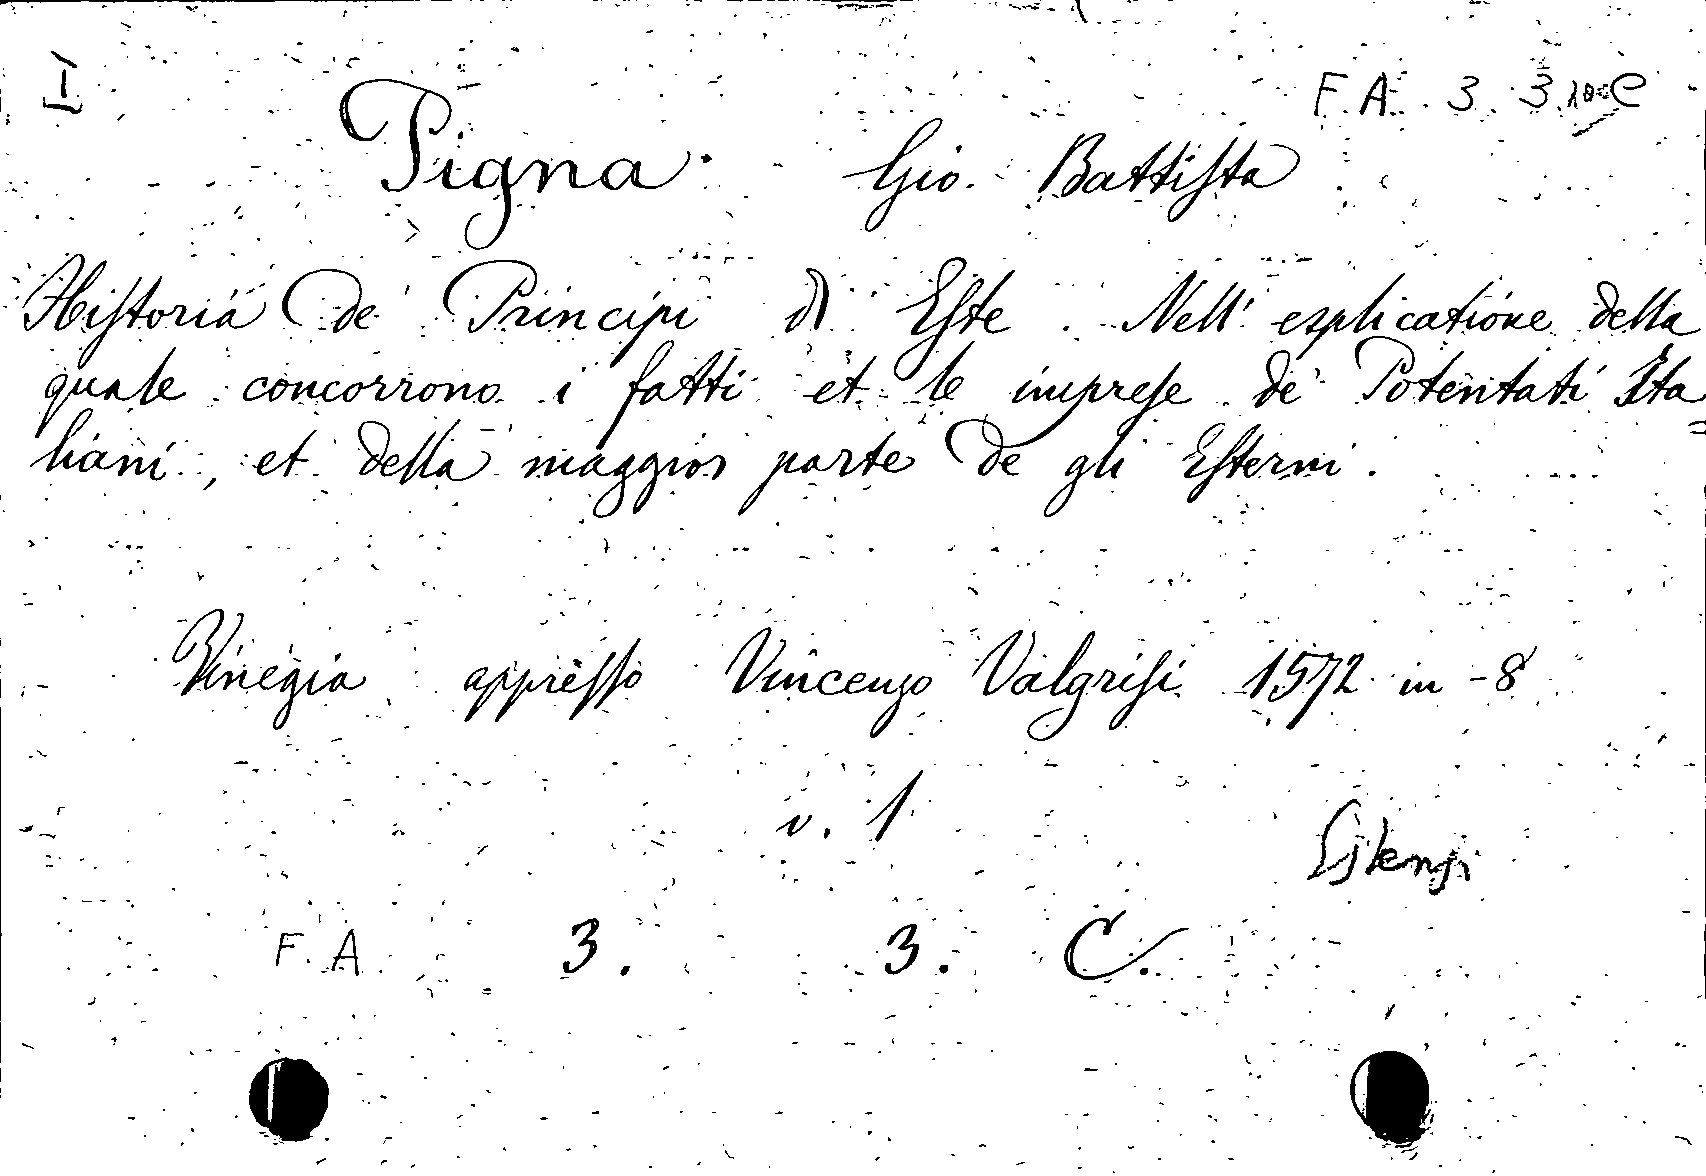 I
F. A. 3. 3. 10 C
Pigna. Gio. Battista
Historia de' Principi di Este. Nell' esplicatione della
quale concorrono i fatti et le imprese de' Potentati Ita
liani, et della maggior parte de gli Esterni.
Vinegia appresso Vincenzo Valgrisi 1572 in -8
v. 1
Estensi
F. A. 3. 3. C.